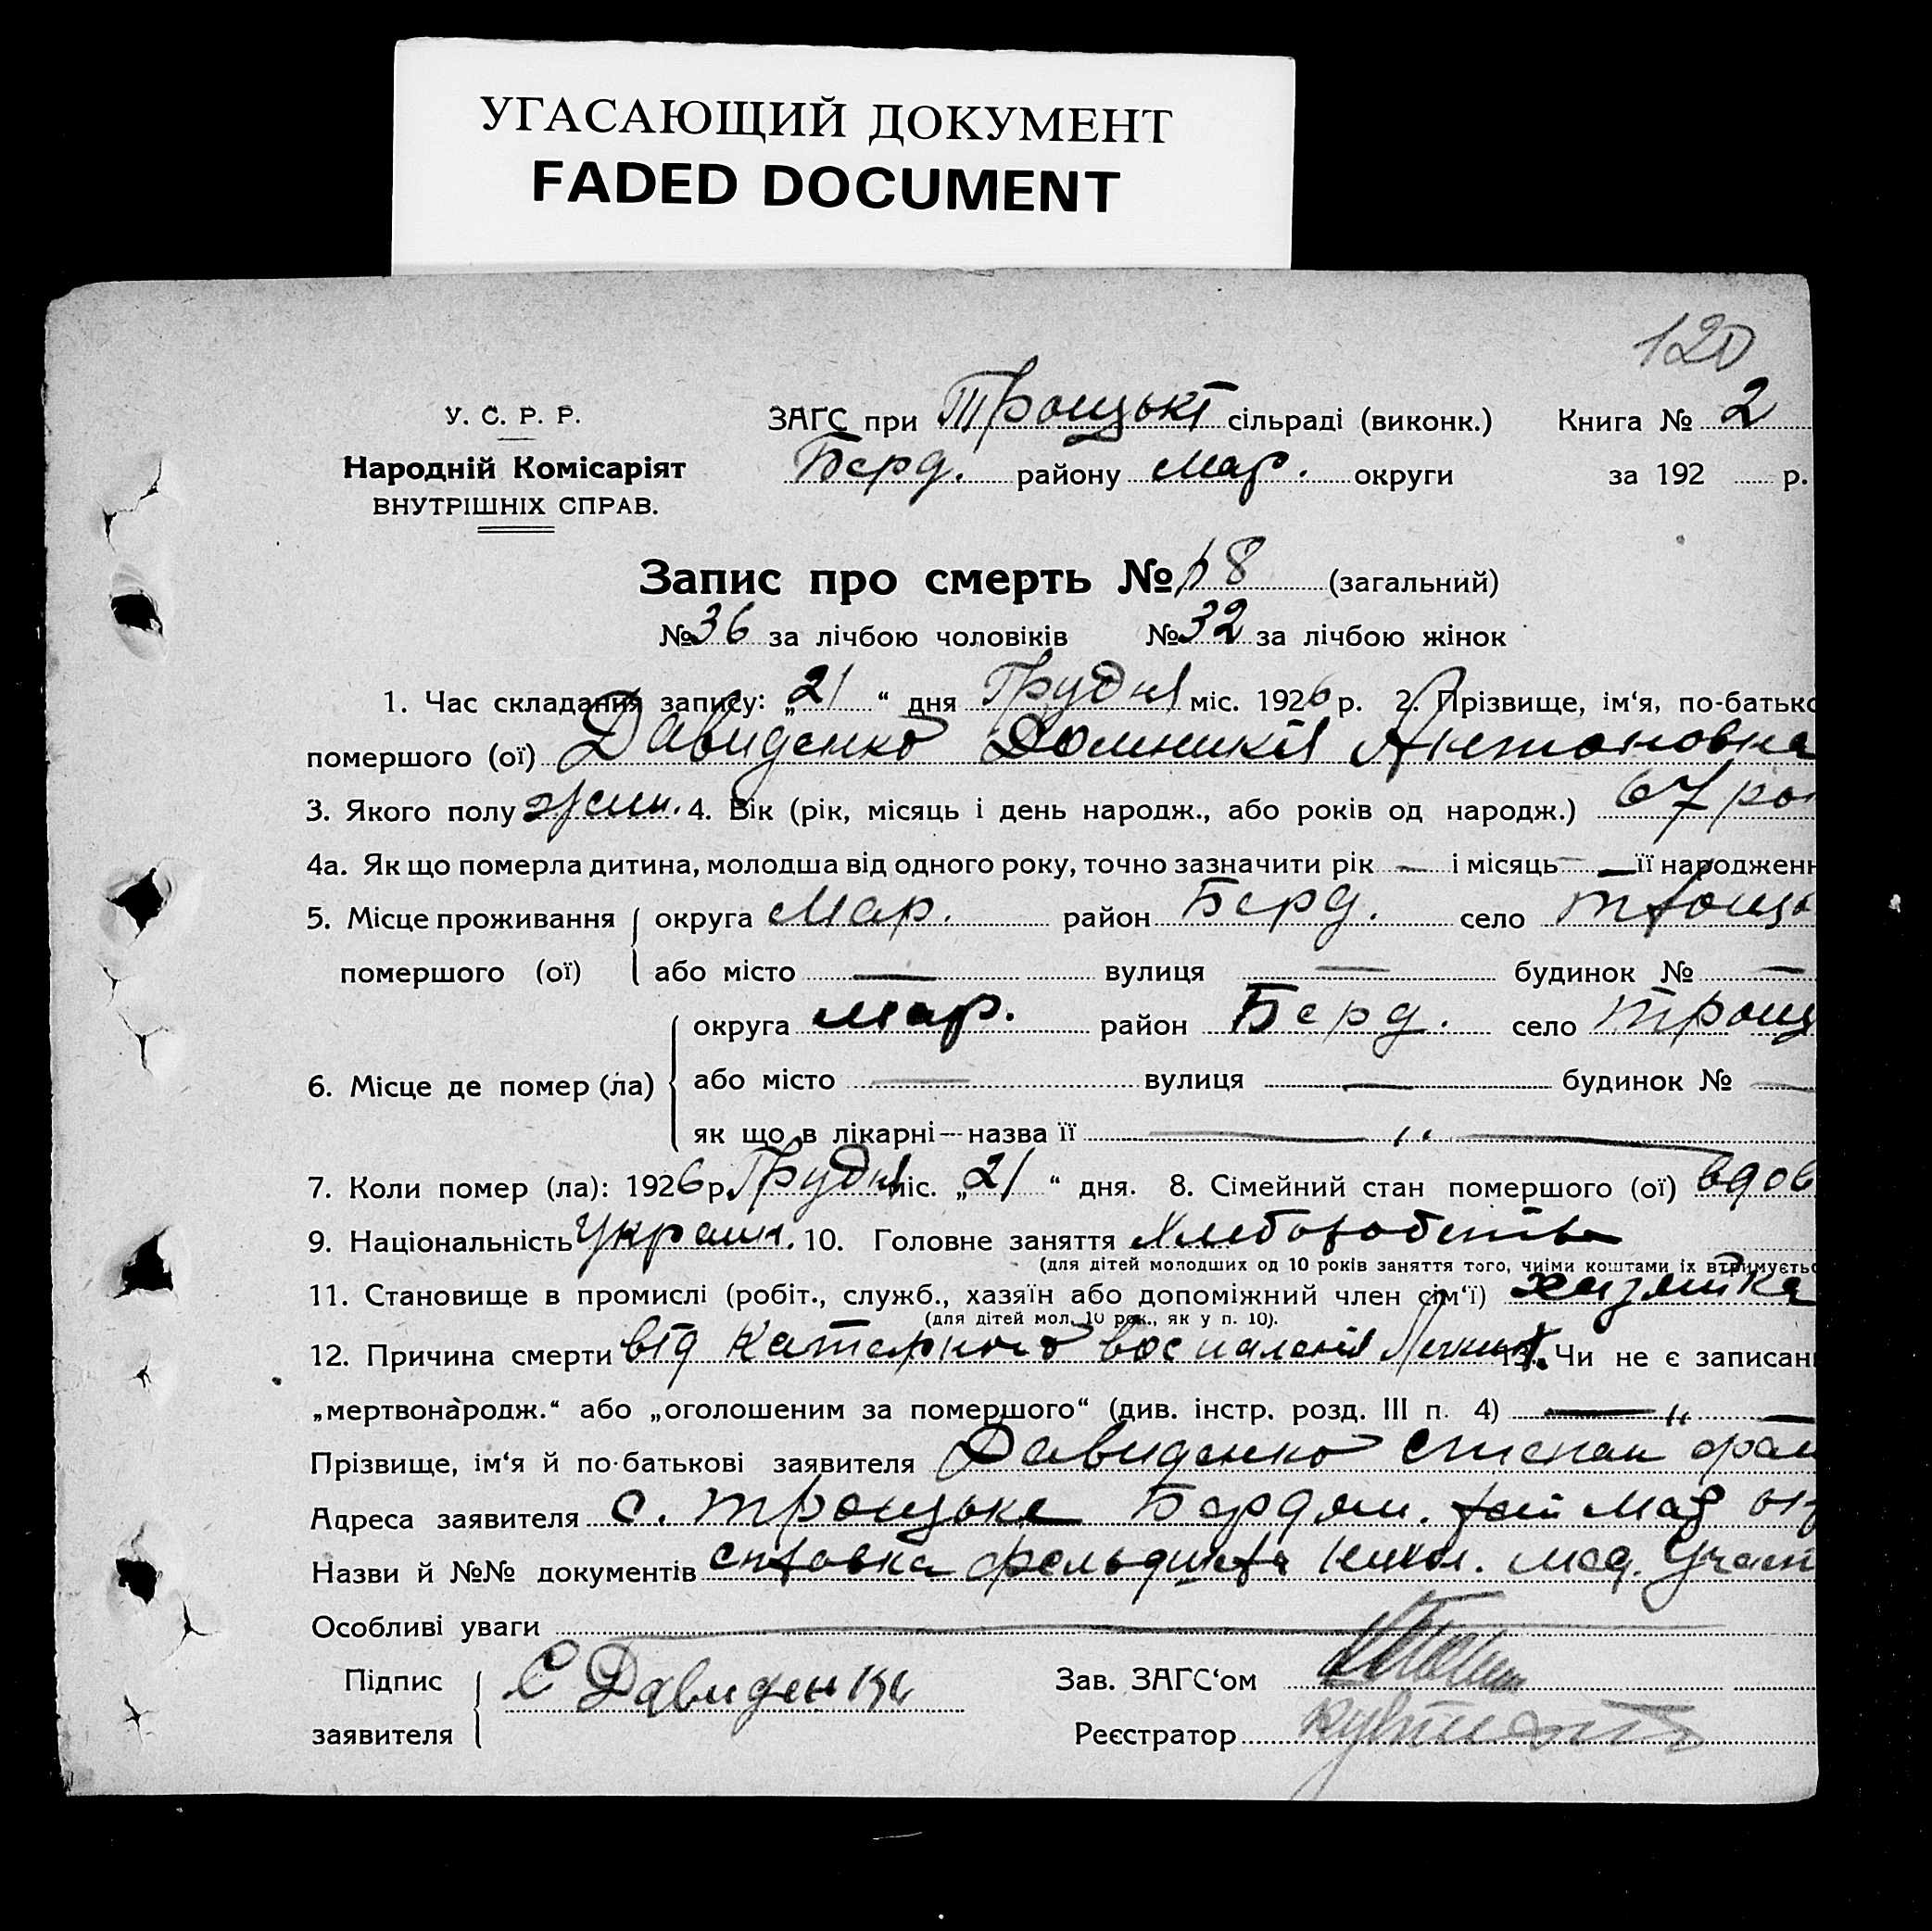 УГАСАЮЩИЙ ДОКУМЕНТ
FADED DOCUMENT
120
У. С. Р. Р.
Народній Комісаріят
ВНУТРІШНІХ СПРАВ.
ЗАГС при Троицькі сільраді (виконк.) Книга № 2
Берд. району Мар. округи за 192 р.
Запис про смерть № 68 (загальний)
№ 36 за лічбою чоловіків № 32 за лічбою жінок
1. Час складання запису: „21“ дня Грудня міс. 1926 р. 2. Прізвище, ім‘я, по-батько
помершого (ої) Давиденко Домникія Антоновна
3. Якого полу жин. 4. Вік (рік, місяць і день народж., або років од народж.) 67 рок
4а. Як що померла дитина, молодша від одного року, точно зазначити рік — і місяць — її народженн
5. Місце проживання округа Мар. район Берд. село Троицьк
помершого (ої) або місто — вулиця — будинок № —
округа Мар. район Берд. село Троиц
6. Місце де помер (ла) або місто — вулиця — будинок № —
як що в лікарні—назва її — „ —
7. Коли помер (ла): 1926 р. Грудня міс. „21“ дня. 8. Сімейний стан помершого (ої) вдов
9. Національність Украин. 10. Головне заняття Хлеборобств
(для дітей молодших од 10 років заняття того, чиїми коштами їх втримуєтьс
11. Становище в промислі (робіт., служб., хазяїн або допоміжний член сім‘ї) хазяйка
(для дітей мол. 10 рок., як у п. 10).
12. Причина смерти від Катарного воспаления Легких 13. Чи не є записан
„мертвонародж.“ або „оголошеним за помершого“ (див. інстр. розд. III п. 4) — „ —
Прізвище, ім‘я й по-батькові заявителя Давиденко Степан
Адреса заявителя с. Троицьке Бердян. рай Мар окр
Назви й №№ документів справка фельдшера Никол. мед. Участ
Особливі уваги —
Підпис заявителя С Давиденко
Зав. ЗАГС‘ом
Реєстратор